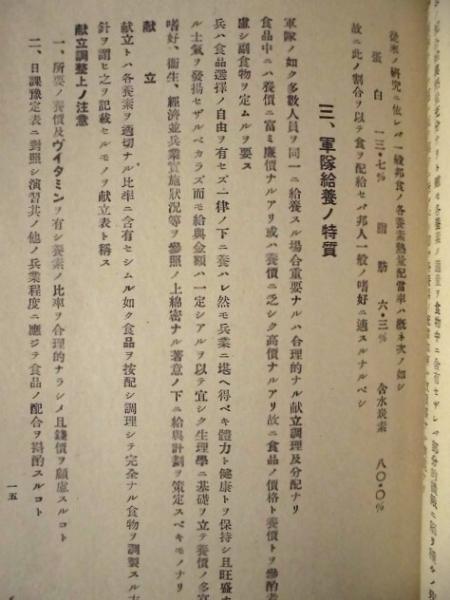 從來ノ研究ニ依レバ一般邦食ノ各養素熱量配當率ハ概ネ次ノ如シ
蛋白 一三・七% 脂肪 六・三% 含水炭素 八〇・〇%
故ニ此ノ割合ヲ以テ食ヲ配給セバ邦人一般ノ嗜好ニ適スルナルベシ
三、軍隊給養ノ特質
軍隊ノ如ク多數人員ヲ同一ニ給養スル場合重要ナルハ合理的ナル献立調理及分配ナリ
食品中ニハ養價ニ富ミ廉價ナルアリ或ハ養價ニ乏シク高價ナルアリ故ニ食品ノ價格ト養價トヲ參酌考
慮シ副食物ヲ定ムルヲ要ス
兵ハ食品選擇ノ自由ヲ有セズ一律ノ下ニ養ハレ然モ兵業ニ堪ヘ得ベキ體力ト健康トヲ保持シ且旺盛
ル士氣ヲ發揚セザルベカラズ而モ給與金額ハ一定シアルヲ以テ宜シク生理學ニ基礎ヲ立テ養價ノ多寡
嗜好、衞生、經濟並兵業實施狀況等ヲ參照ノ上綿密ナル著意ノ下ニ給與計劃ヲ策定スベキモノナリ
献立
献立トハ各養素ヲ適切ナル比率ニ含有セシムル如ク食品ヲ按配シ調理シテ完全ナル食物ヲ調製スル方
針ヲ謂ヒ之ヲ記載セルモノヲ献立表ト稱ス
献立調整上ノ注意
一、所要ノ養價及ヴイタミンヲ有シ養素ノ比率ヲ合理的ナラシメ且錢價ヲ顧慮スルコト
二、日課豫定表ニ對照シ演習其ノ他ノ兵業程度ニ應ジテ食品ノ配合ヲ斟酌スルコト
一五